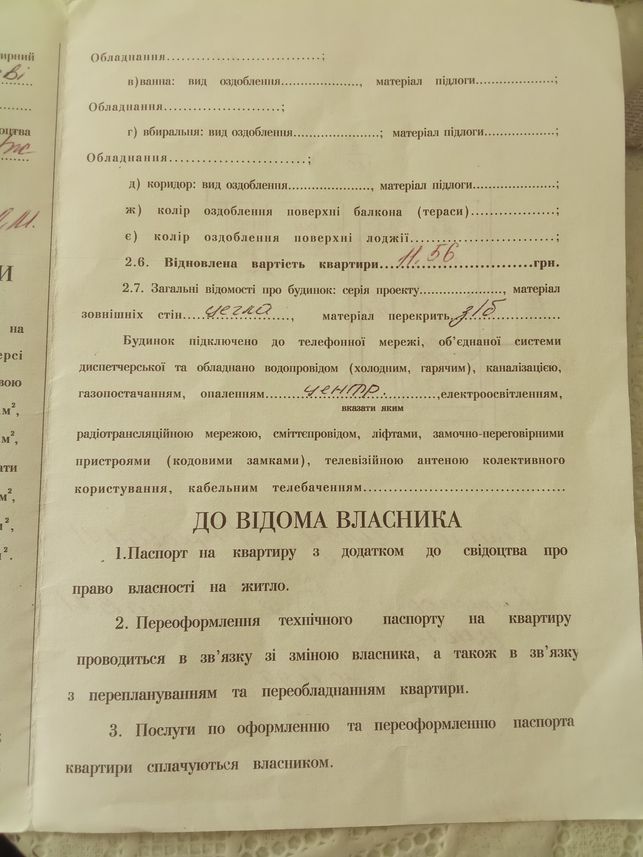 Обладнання..............................;
в)ванна: вид оздоблення...................., матеріал підлоги....................;
Обладнання.......................;
г) вбиральня: вид оздоблення......................; матеріал підлоги..................;
Обладнання...........................;
д) коридор: вид оздоблення....................., матеріал підлоги.....................;
ж) колір оздоблення поверхні балкона (тераси)................;
є) колір оздоблення поверхні лоджії...........................;
2.6. Відновлена вартість квартири...11.56...........грн.
2.7. Загальні відомості про будинок: серія проекту....................., матеріал
зовнішніх стін.....цегла....., матеріал перекрить.з/б...............
Будинок підключено до телефонної мережі, об’єднаної системи
диспетчерської та обладнано водопровідом (холодним, гарячим), каналізацією,
газопостачанням, опаленням........центр.........,електроосвітленням,
вказати яким
радіотрансляційною мережою, сміттєпровідом, ліфтами, замочно-переговірними
пристроями (кодовими замками), телевізійною антеною колективного
користування, кабельним телебаченням.......................................
ДО ВІДОМА ВЛАСНИКА
1.Паспорт на квартиру з додатком до свідоцтва про
право власності на житло.
2. Переоформлення технічного паспорту на квартиру
проводиться в зв’язку зі зміною власника, а також в зв’язку
з переплануванням та переобладнанням квартири.
3. Послуги по оформленню та переоформленню паспорта
квартири сплачуються власником.